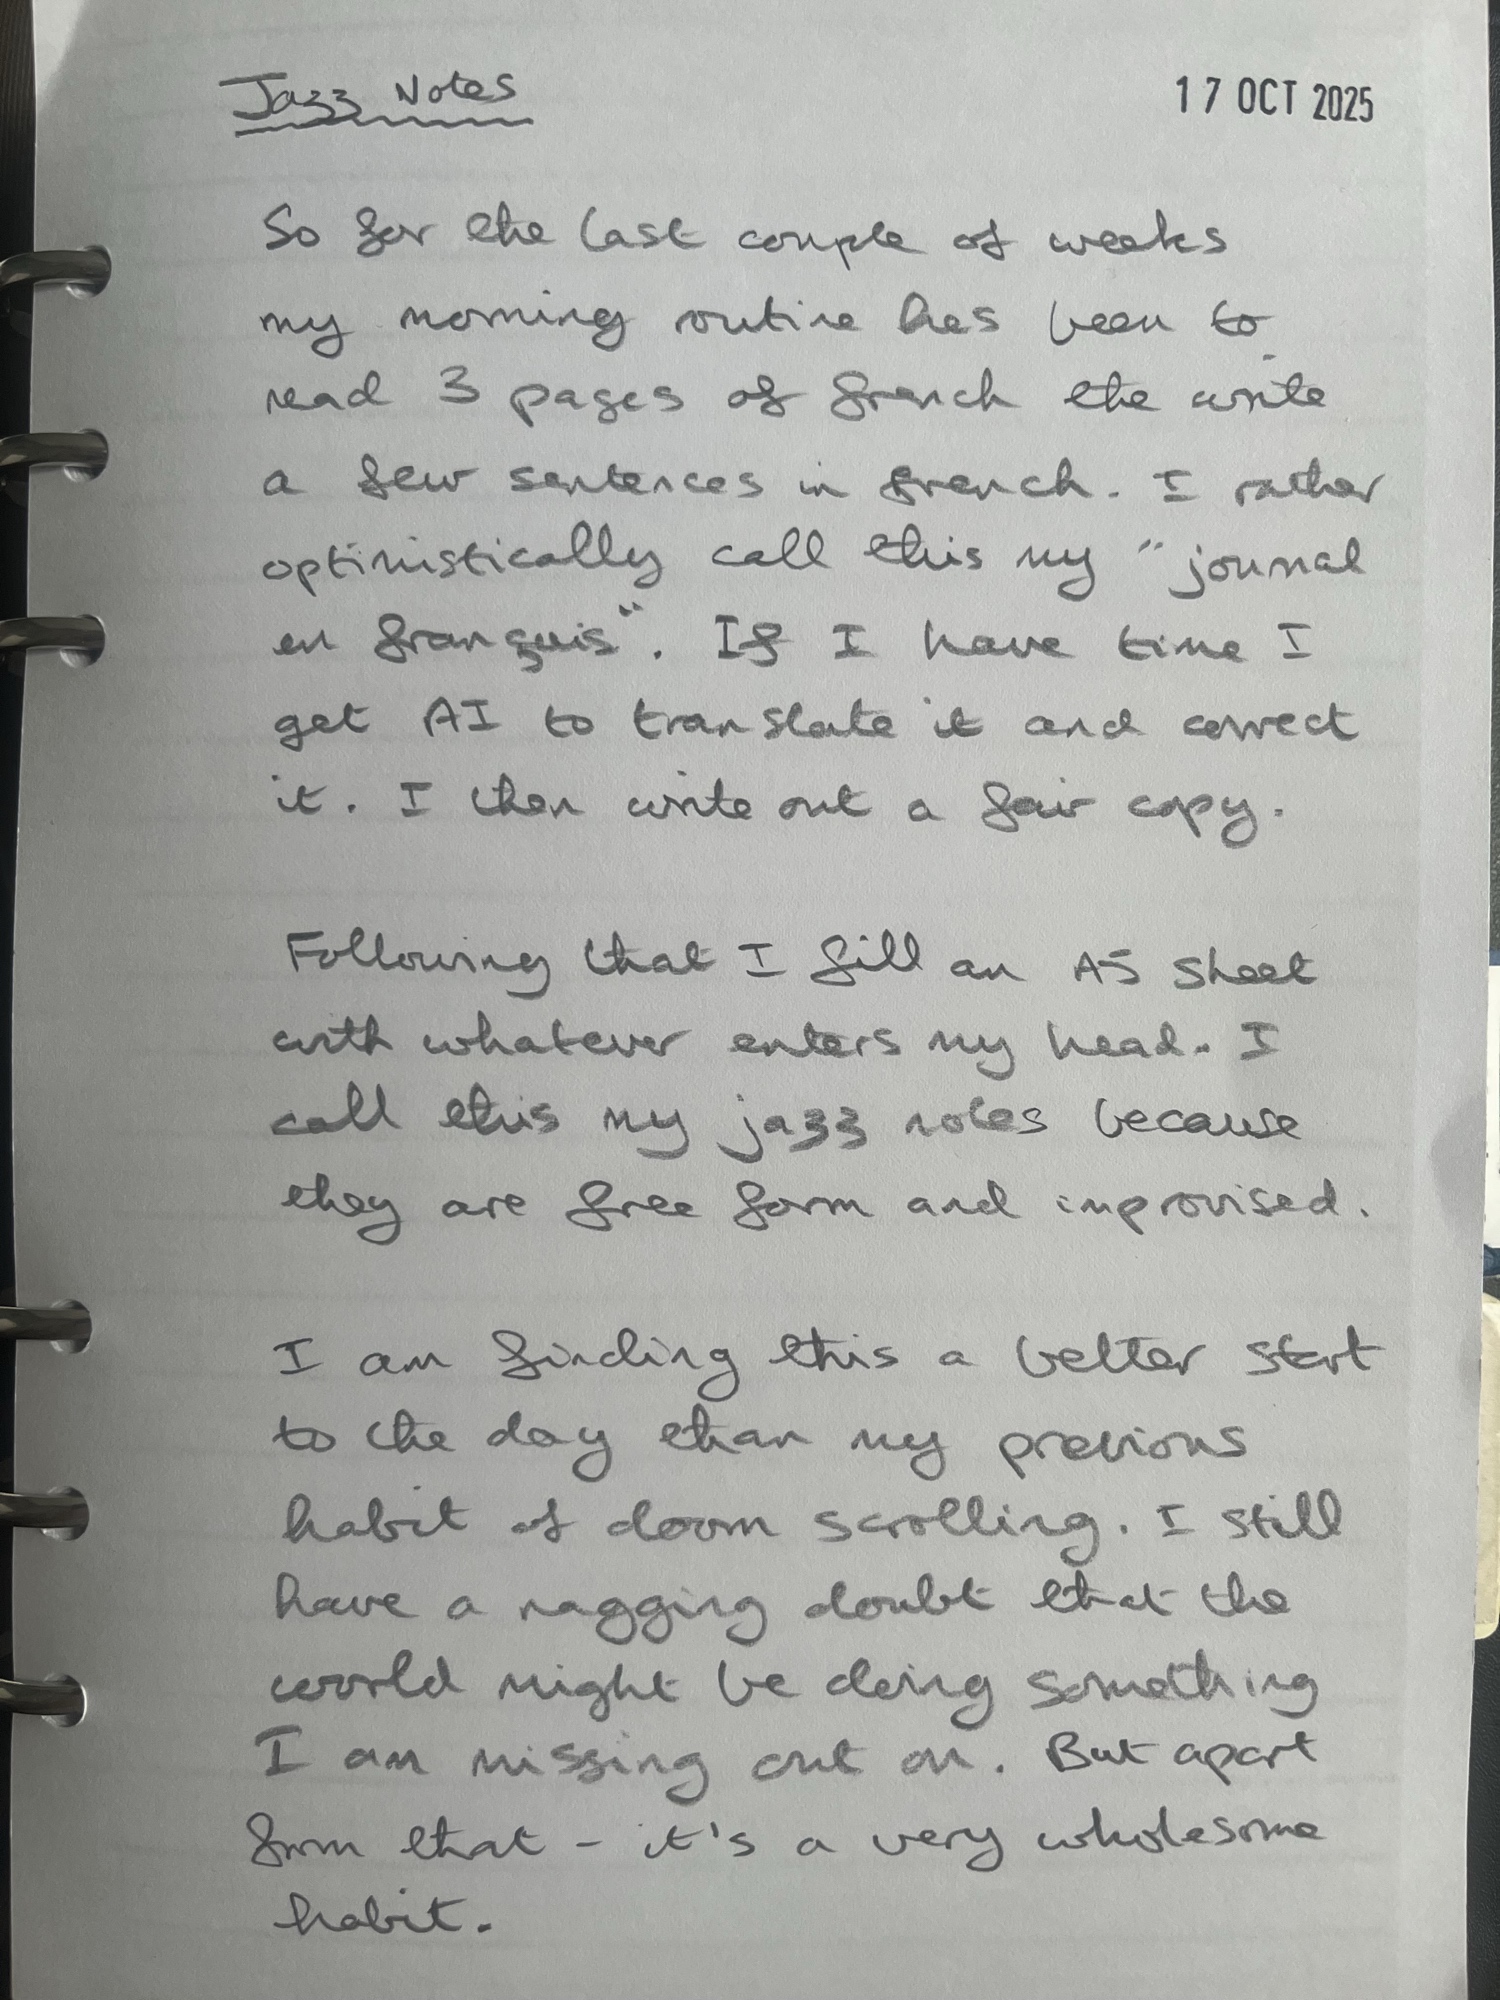 Jazz Notes
17 OCT 2025
So for the last couple of weeks
my morning routine has been to
read 3 pages of french the write
a few sentences in french. I rather
optimistically call this my "journal
en français". If I have time I
get AI to translate it and correct
it. I then write out a fair copy.
Following that I fill an A5 sheet
with whatever enters my head. I
call this my jazz notes because
they are free form and improvised.
I am finding this a better start
to the day than my previous
habit of doom scrolling. I still
have a nagging doubt that the
world might be doing something
I am missing out on. But apart
from that - it's a very wholesome
habit.